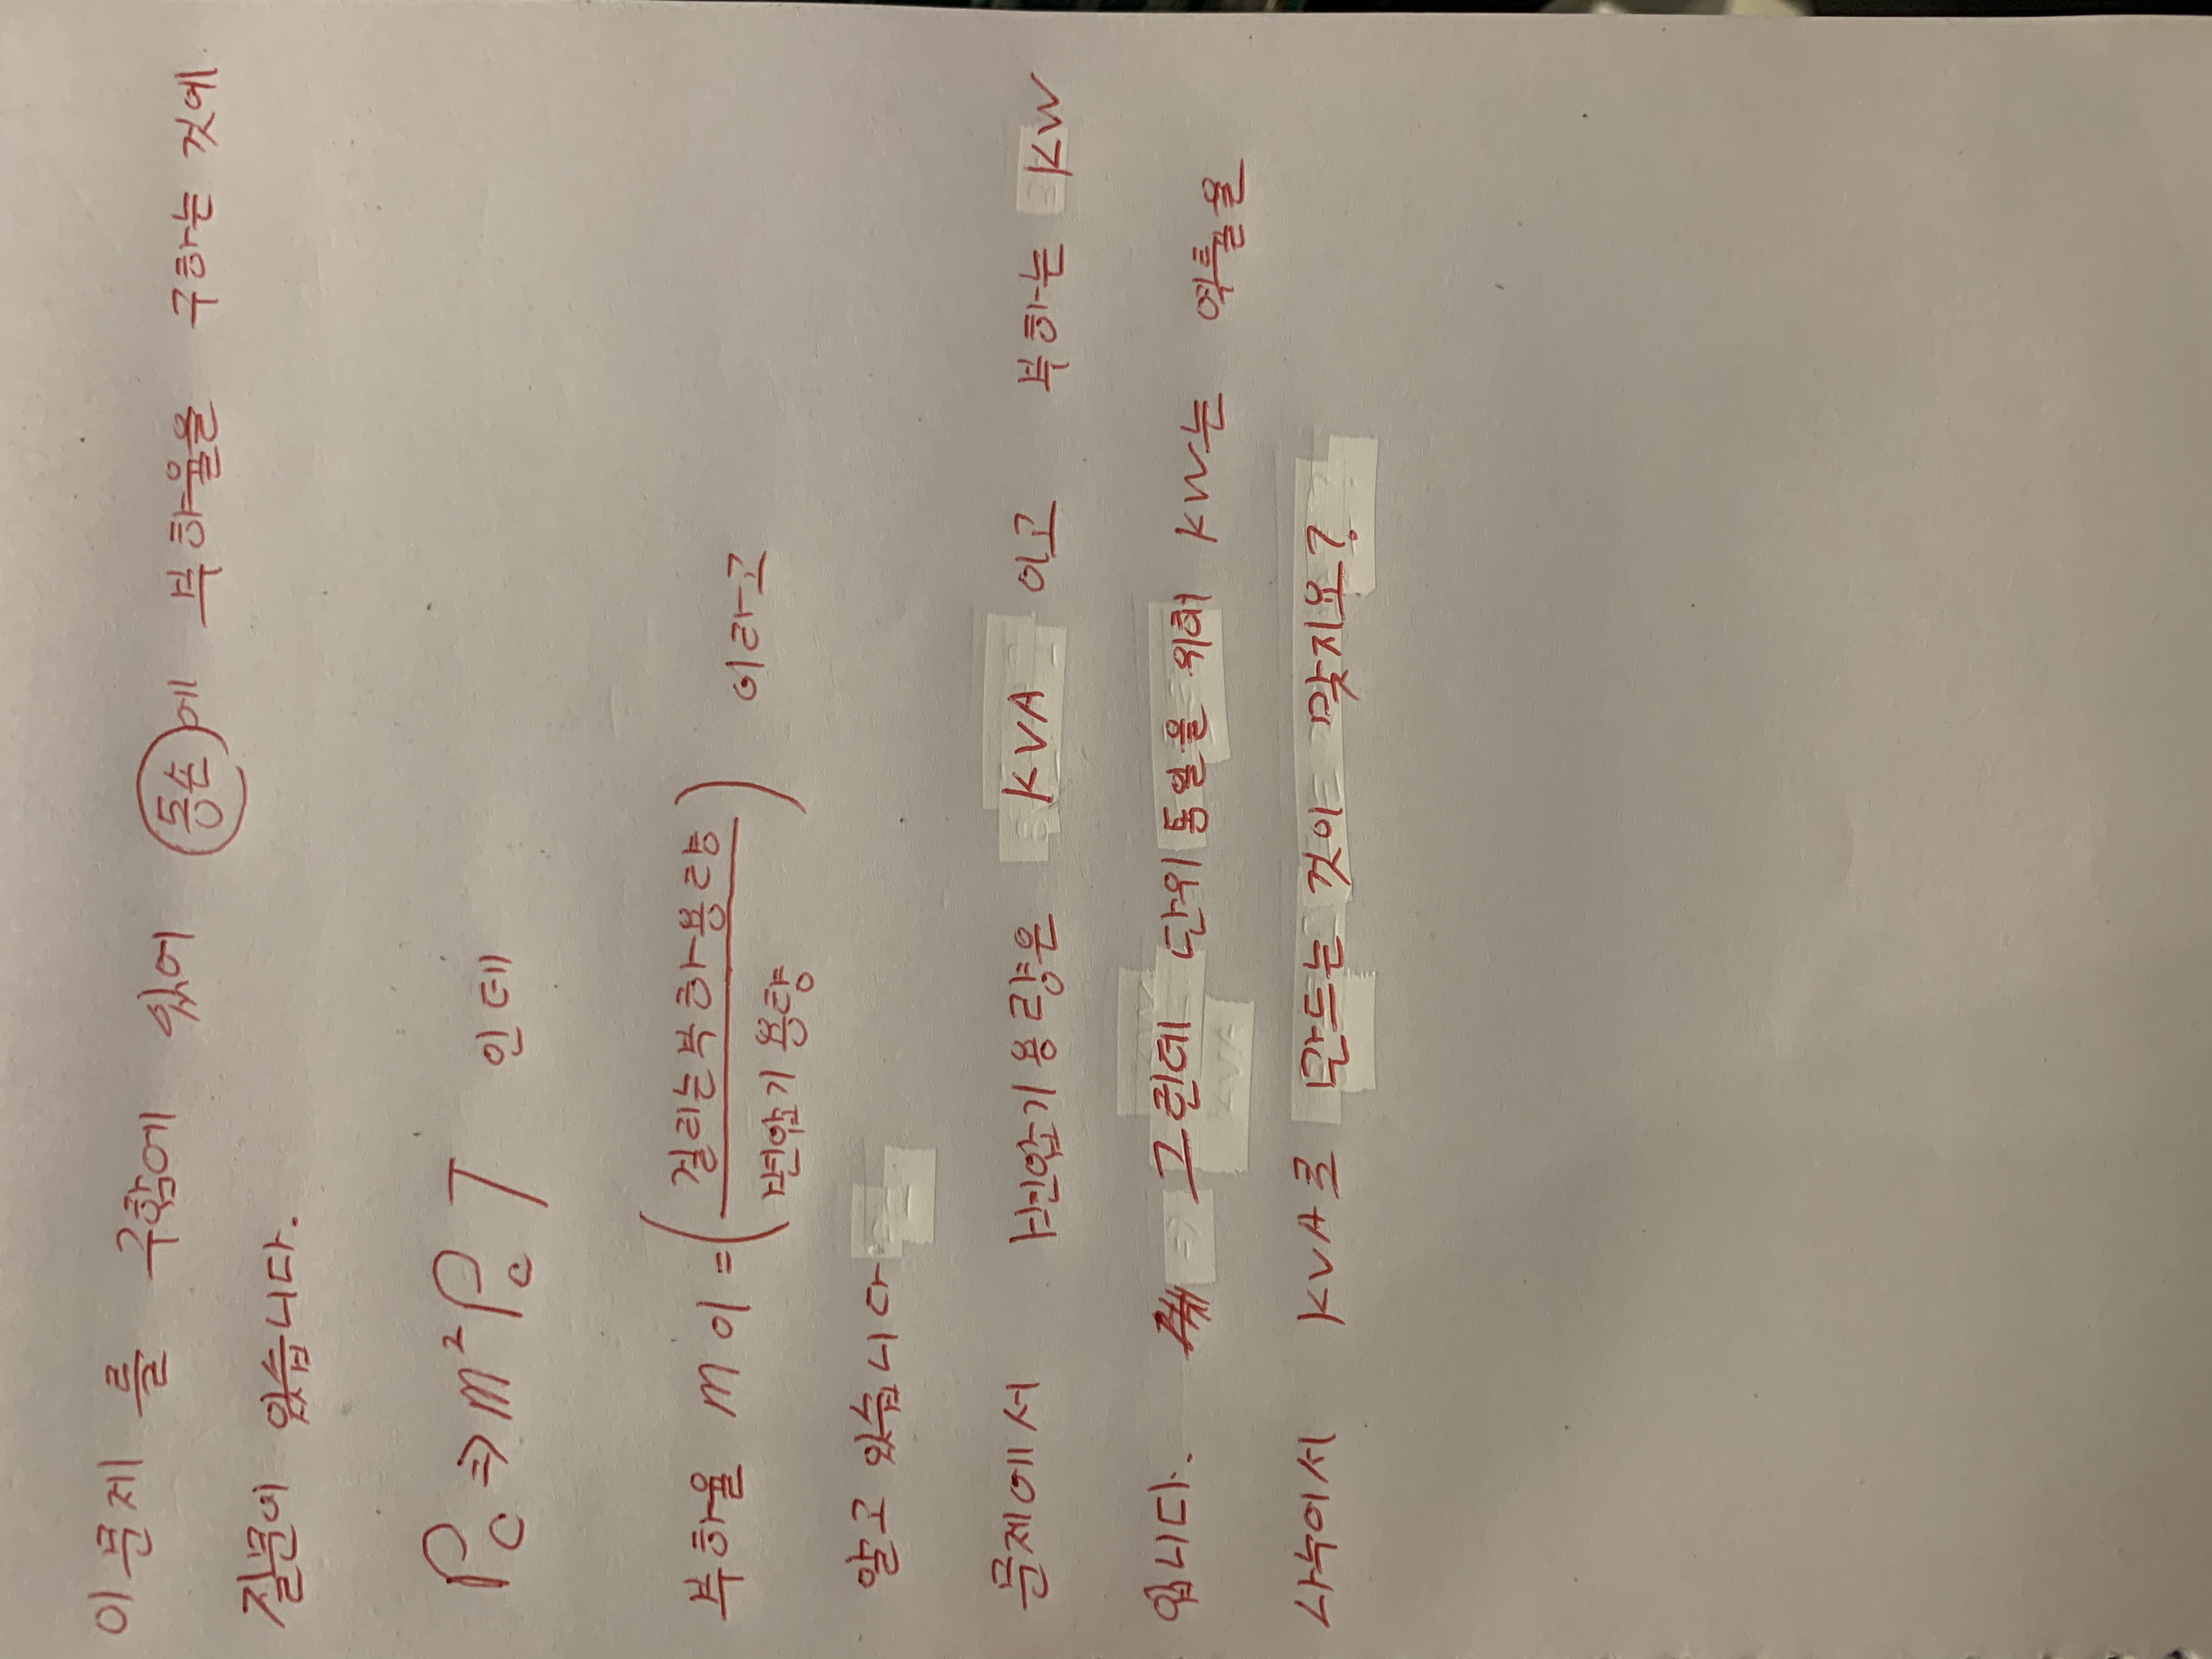 이 문제 를 구함에 있어 동손에 부하율을 구하는 것에
질문이 있습니다.
Pc ⇒ m² Pc T 인데
부하율 m 이 = (걸리는부하용량 / 변압기 용량) 이라고
알고 있습니다
문제에서 변압기용량은 KVA 이고 부하는 KW
입니다. 그런데 단위통일을 위해 KW는 역률을
나눠서 KVA로 만드는 것이 맞지요?